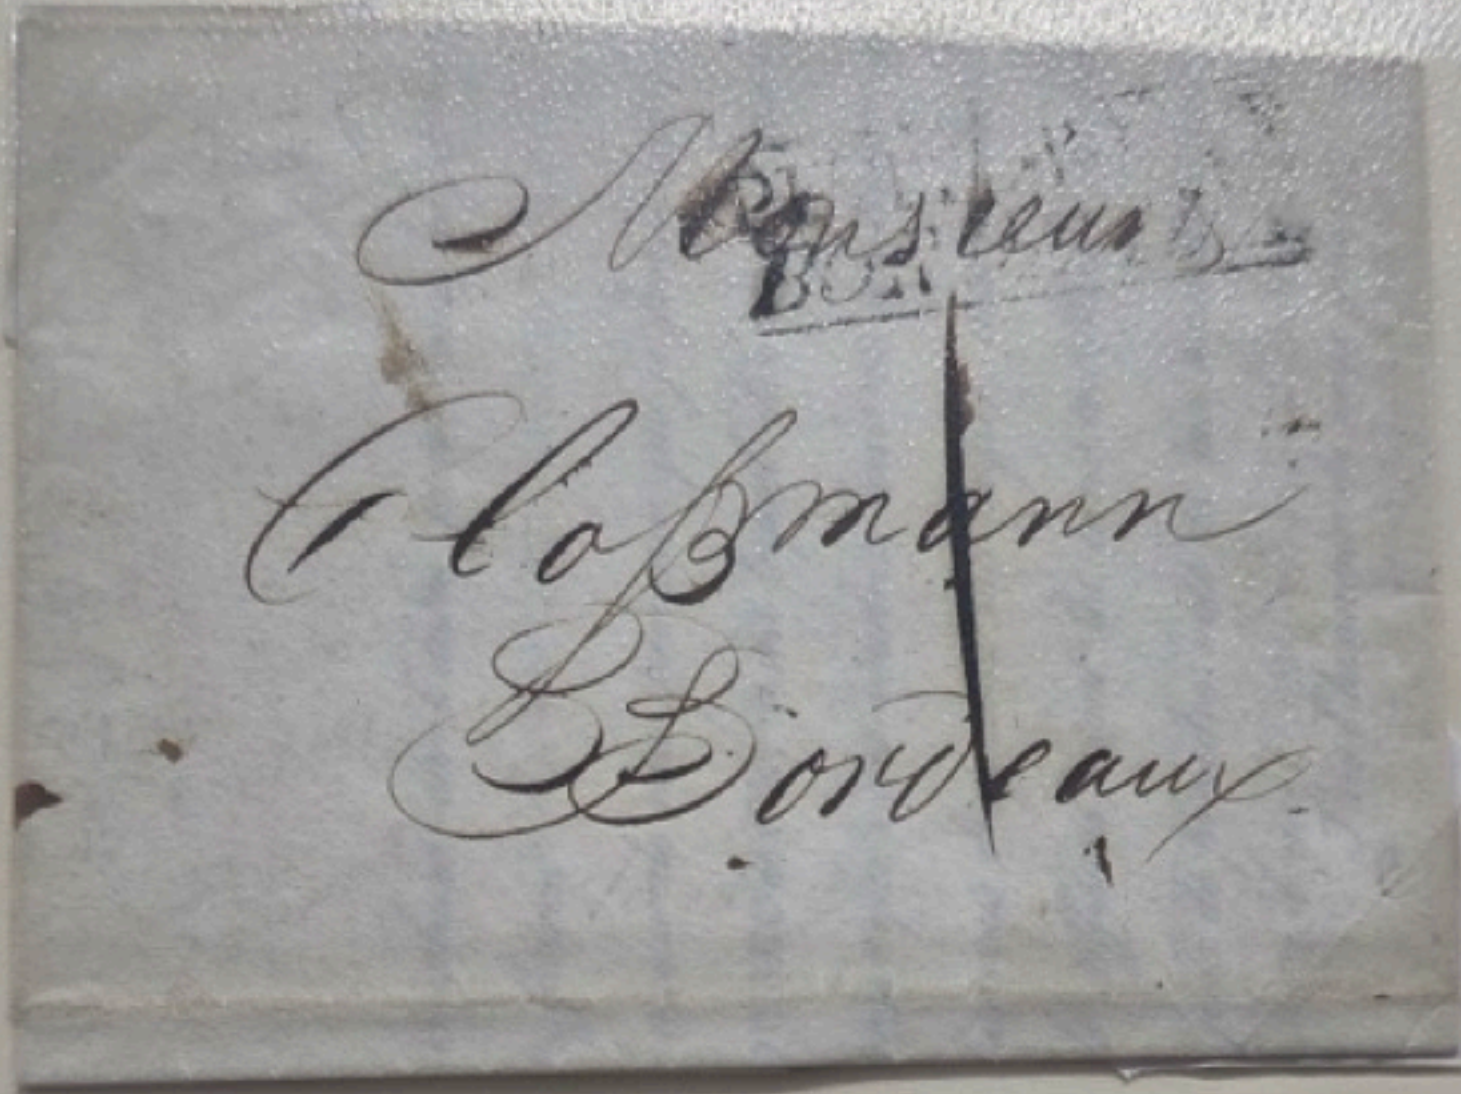 Monsieur
Cloßmann
Bordeaux